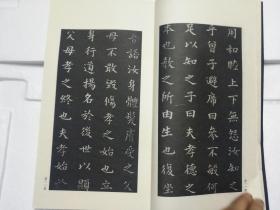 用和睦上下無怨汝知之
乎曾子避席曰參不敏何
足以知之子曰夫孝德之
本也教之所由生也復坐
吾語汝身體髮膚受之父
母不敢毀傷孝之始也立
身行道揚名於後世以顯
父母孝之終也夫孝始於